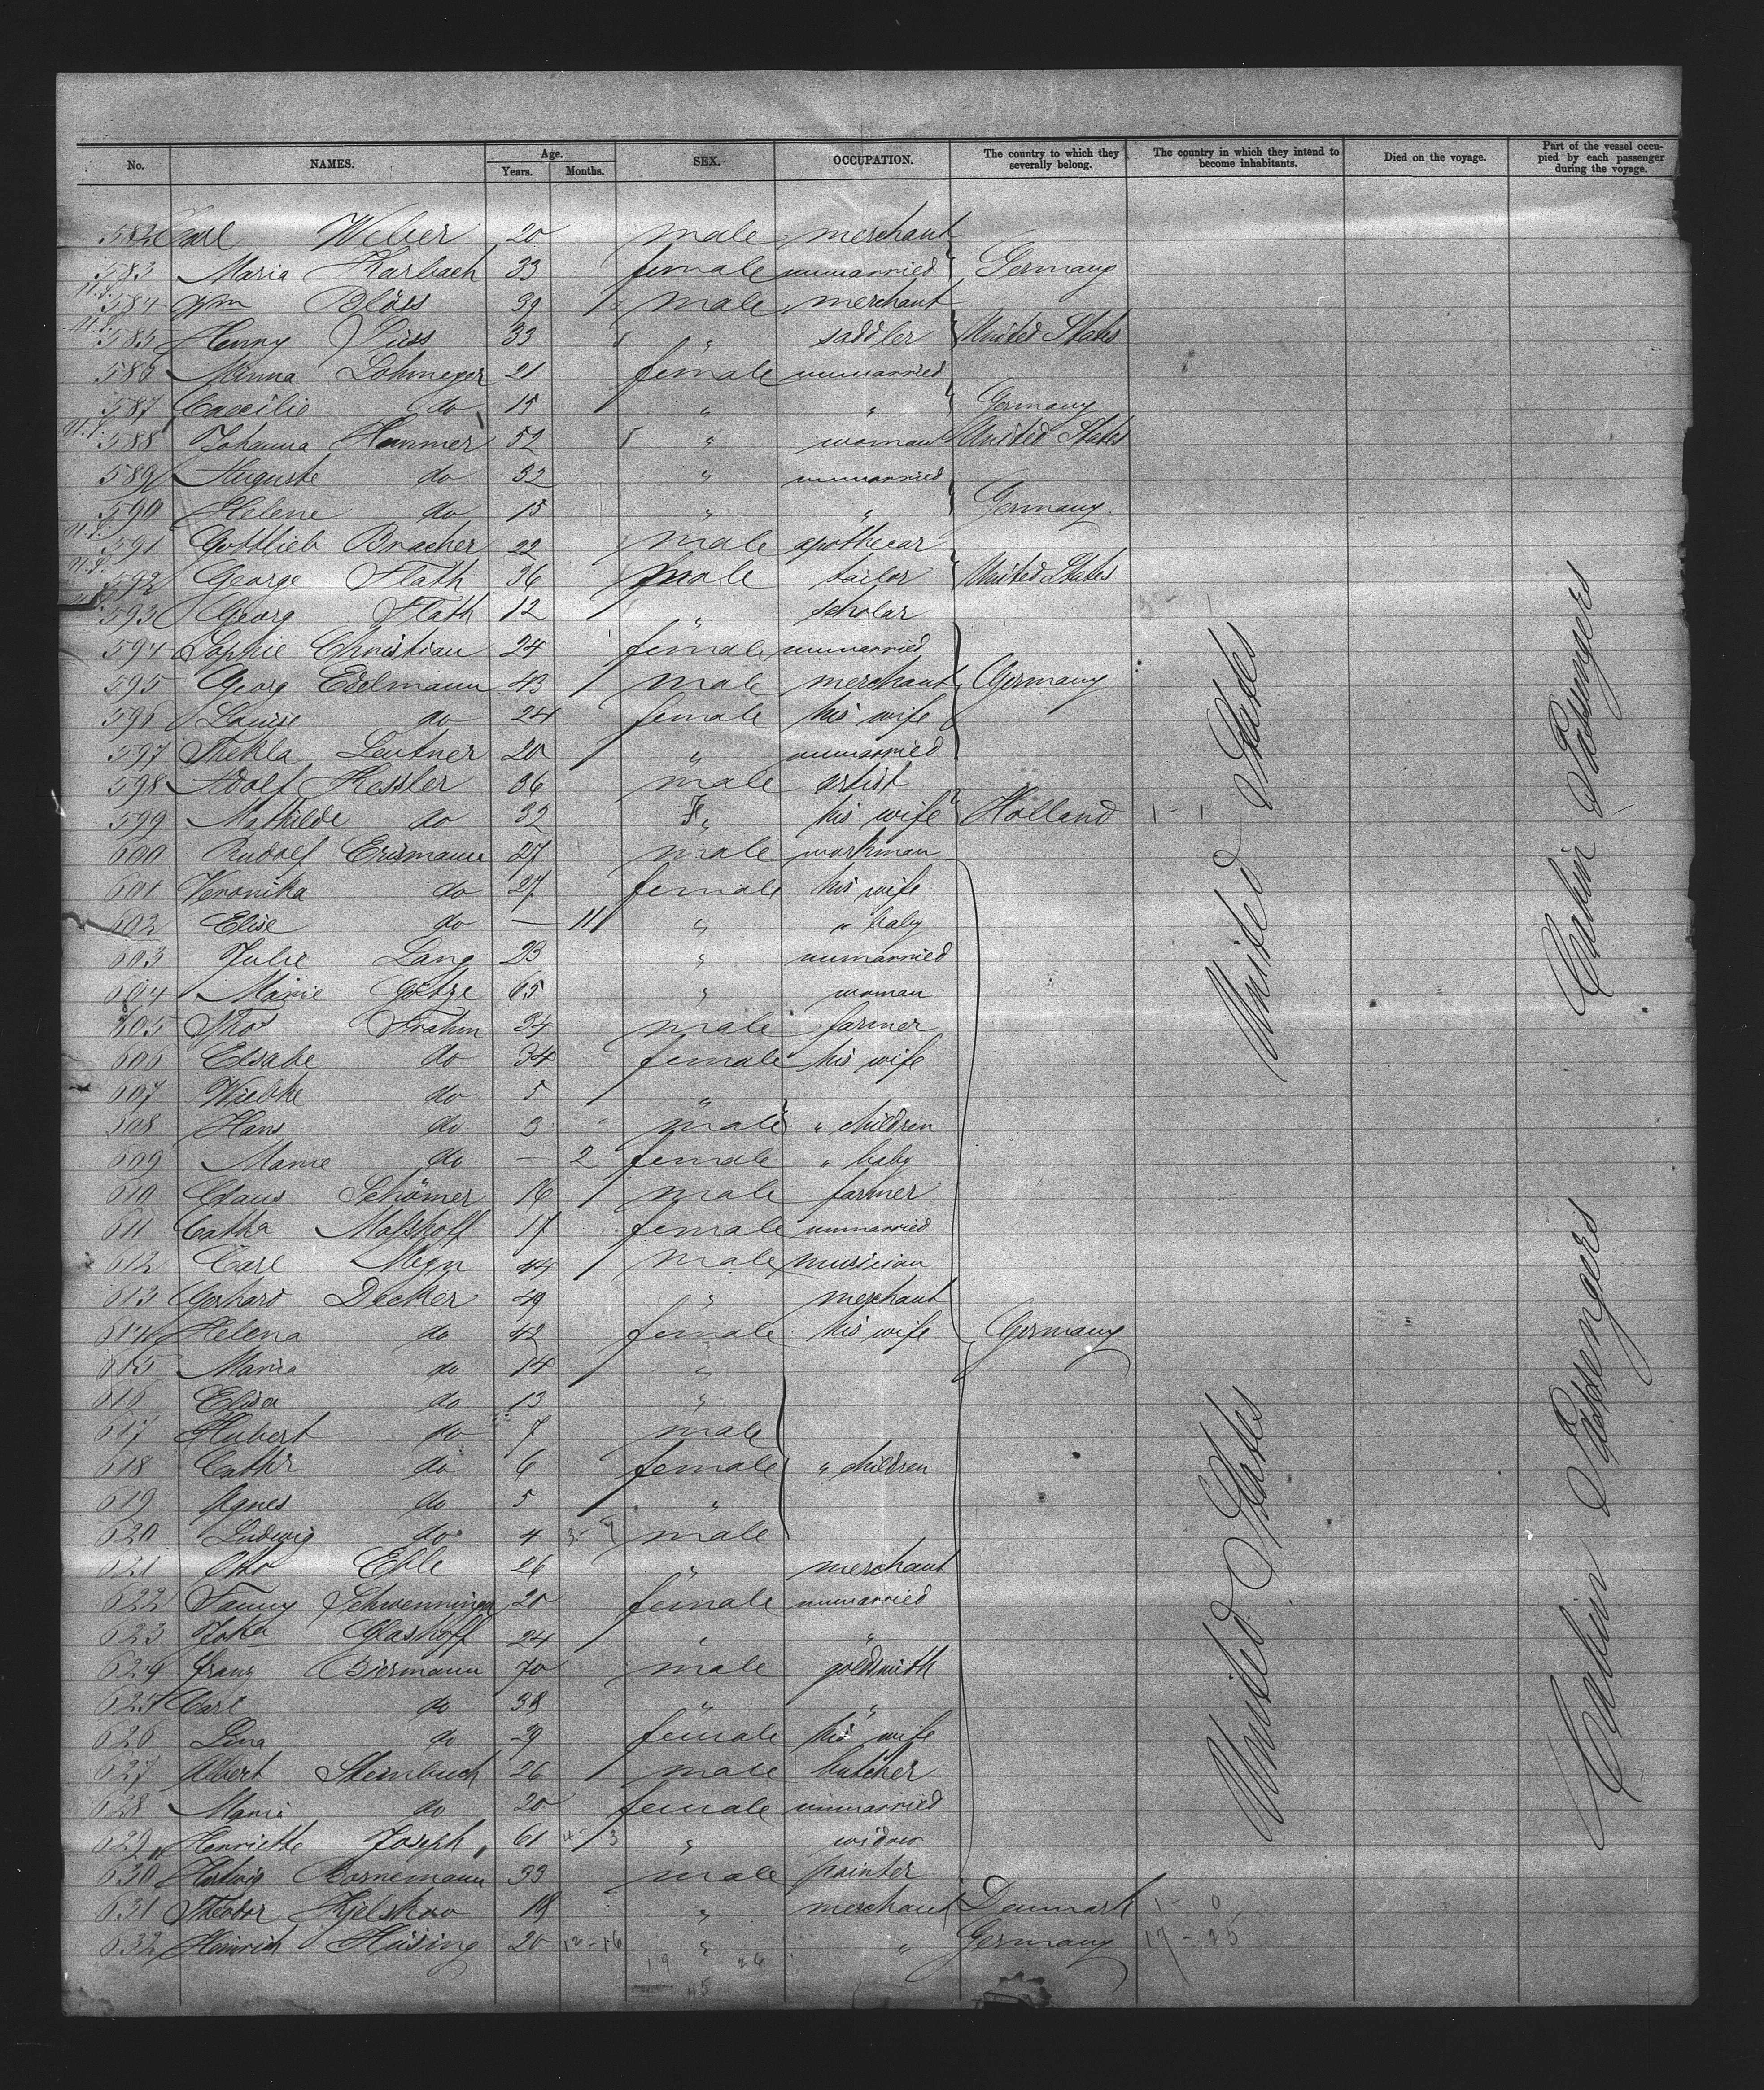 No. NAMES. Age. Years. Months. SEX. OCCUPATION. The country to which they severally belong. The country in which they intend to become inhabitants. Died on the voyage. Part of the vessel occupied by each passenger during the voyage.
582 Carl Weber 20 male merchant
583 Maria Karbach 33 female unmarried Germany
584 Wm Blöss 39 male merchant
585 Henry Süss 33 " saddler United States
586 Minna Lohmeyer 21 female unmarried
587 Caecilie do 15 " " Germany
588 Johanna Hammer 52 " woman United States
589 Auguste do 32 " unmarried
590 Helene do 15 " " Germany
591 Gottlieb Bracher 22 male apothecar
592 George Flath 36 male tailor United States
593 Georg Flath 12 " scholar
594 Sophie Christian 24 female unmarried
595 Georg Edelmann 43 male merchant Germany
596 Louise do 24 female his wife
597 Thekla Leutner 20 " unmarried
598 Adolf Kessler 36 male artist
599 Mathilde do 32 F " his wife Holland 1 - 1
600 Rudolf Erismann 27 male workman
601 Veronika do 27 female his wife
602 Elise do — 11 " " baby
603 Julie Lang 23 " unmarried
604 Marie Götze 65 " woman
605 Thos Frahm 34 male farmer
606 Elsabe do 34 female his wife
607 Wiebke do 5 "
608 Hans do 3 male " children
609 Marie do — 2 female " baby
610 Claus Schömer 16 male farmer
611 Catha Masshoff 17 female unmarried
612 Carl Meyn 44 male musician
613 Gerhard Decker 49 " merchant
614 Helena do 42 female his wife Germany
615 Maria do 14 "
616 Elisa do 13 "
617 Hubert do 7 male
618 Cathr do 6 female " children
619 Agnes do 5 "
620 Ludwig do 4 male
621 Otto Eble 26 " merchant
622 Fanny Schwenninger 20 female unmarried
623 Joha Glashoff 24 " "
624 Franz Biermann 70 male goldsmith
625 Carl do 38 " "
626 Lina do 29 female his wife
627 Albert Steinbuch 26 male butcher
628 Maria do 20 female unmarried
629 Henriette Joseph 61 " widow
630 Hedwig Bornemann 33 male painter
631 Theodor Kjelskov 18 " merchant Denmark 1 - 0
632 Heinrich Hüsing 20 12-16 " " Germany 17 - 25
19 26
45
United States
United States
Cabin Passengers
Cabin Passengers